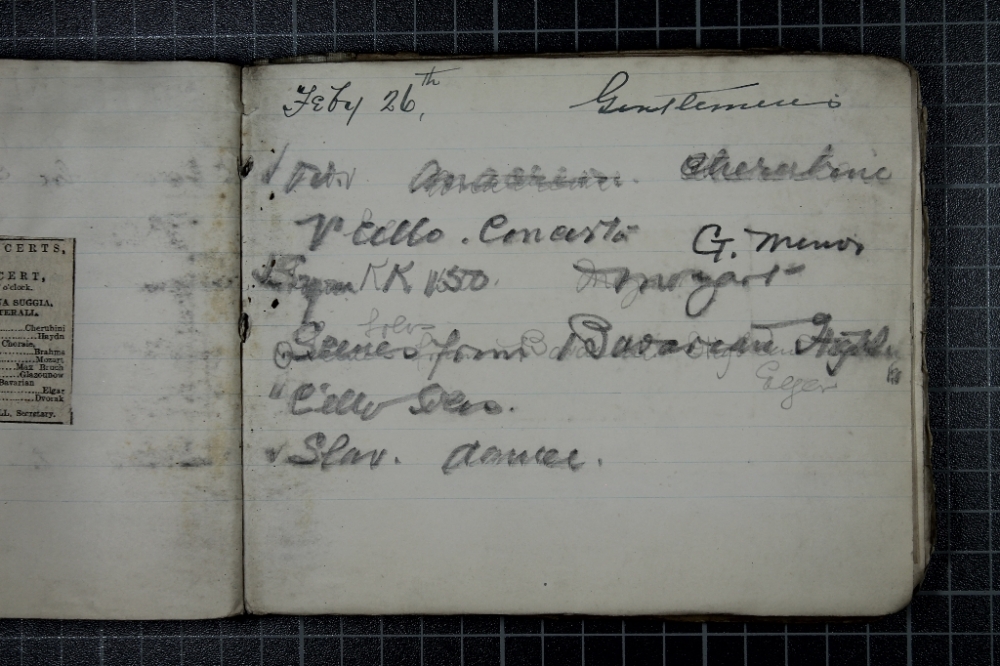 CERTS,
CERT,
o'clock.
A SUGGIA,
TERALL.
Cherubini
Haydn
Cherain,
Brahms
Mozart
Max Bruch
Glazounow
Bavarian
Elgar
Dvorak
LL, Secretary.
Feby 26th, Gentlemens
Over Anacreon. Cherubini
V Cello. Concerto G. Minor
KK 1550. Mozart
Scenes from Bavarian Highl
Elgar
"Cello Solos. "
Slav. dance.